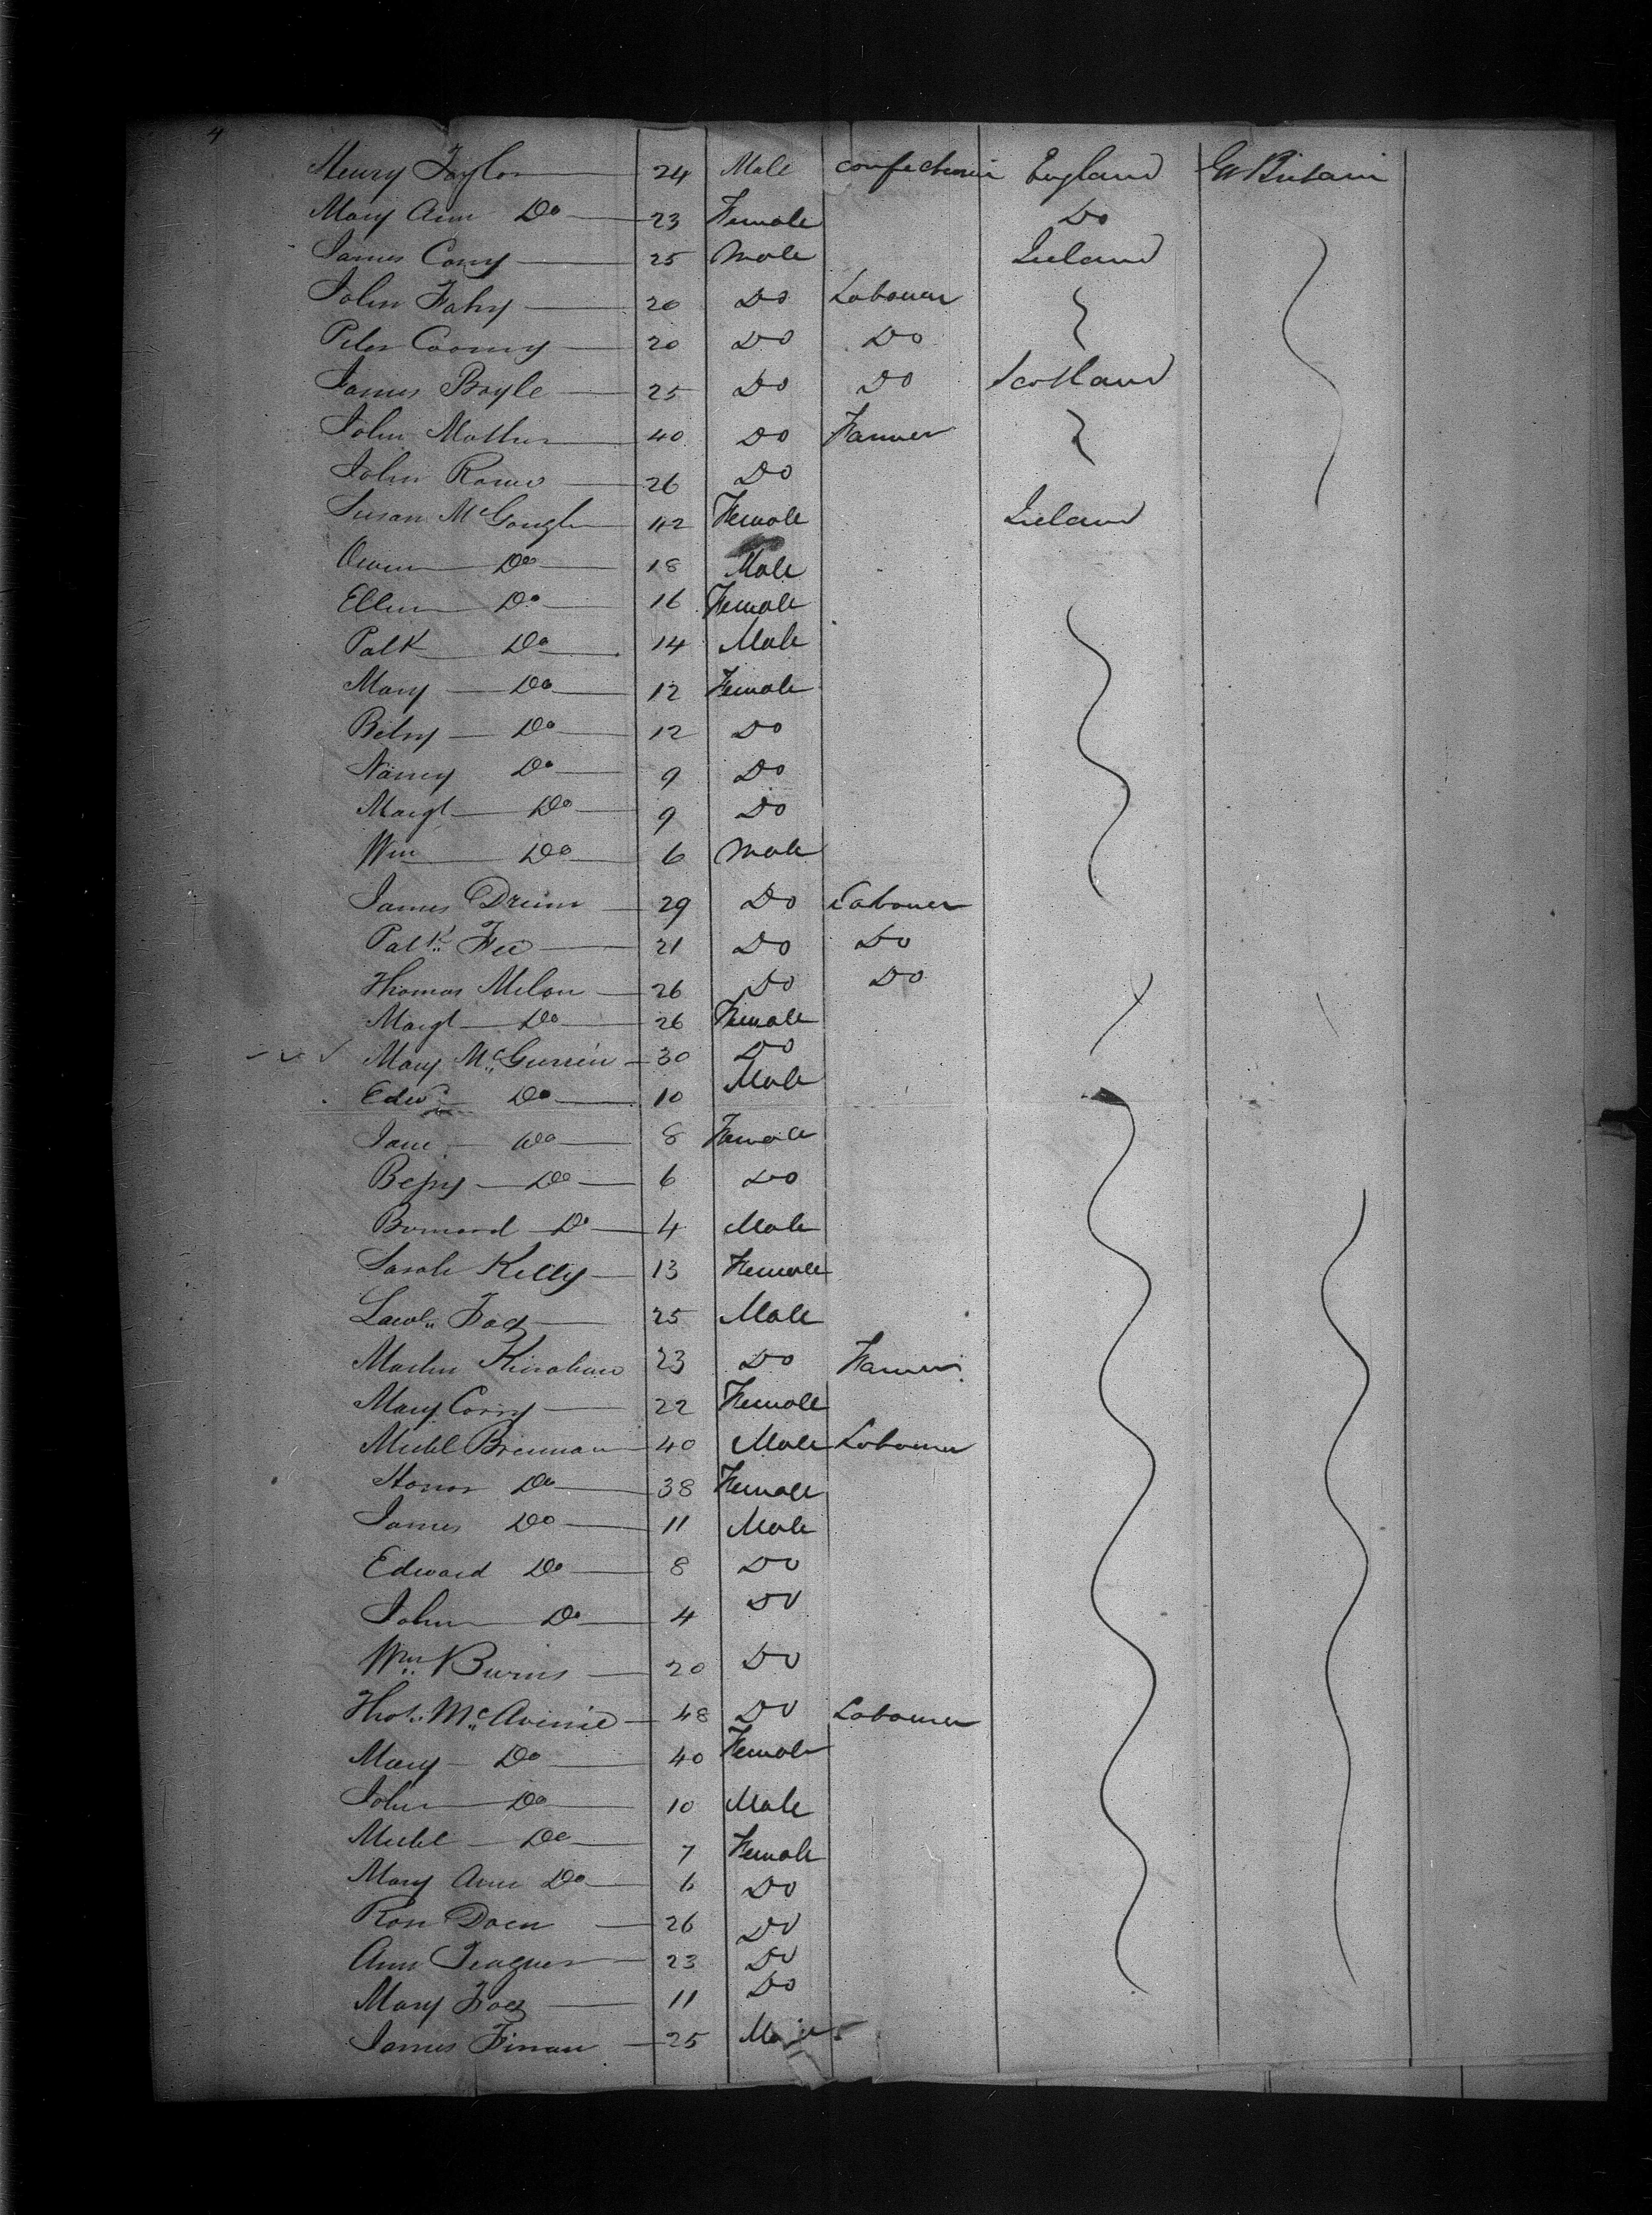 4
Henry Taylor 24 Male confectioner England Gt Britain
Mary Ann Do 23 Female Do
James Cony 25 Male Ireland
John Fahy 20 Do Labourer
Peter Coony 20 Do Do
James Boyle 25 Do Do Scotland
John Mather 40 Do Farmer
John 26 Do
Susan McGough 42 Female Ireland
Owen Do 18 Male
Ellen Do 16 Female
Patk Do 14 Male
Mary Do 12 Female
Betsy Do 12 Do
Nancy Do 9 Do
Margt Do 9 Do
Wm Do 6 Male
James Drum 29 Do Labourer
Patk Fee 21 Do Do
Thomas Milon 26 Do Do
Margt Do 26 Female
Mary McGurrin 30 Do
Edwd Do 10 Male
Jane Do 8 Female
Bessy Do 6 Do
Bernard Do 4 Male
Sarah Kelly 13 Female
Lawc Foy 25 Male
Martin Kinahan 23 Do Farmer
Mary Corry 22 Female
Michl Brennan 40 Male Labourer
Honor Do 38 Female
James Do 11 Male
Edward Do 8 Do
John Do 4 Do
Wm Burns 20 Do
Thos McAvinie 48 Do Labourer
Mary Do 40 Female
John Do 10 Male
Michl Do 7 Female
Mary Ann Do 6 Do
26 Do
Ann Teague 23 Do
Mary Foy 11 Do
James Finan 25 Male